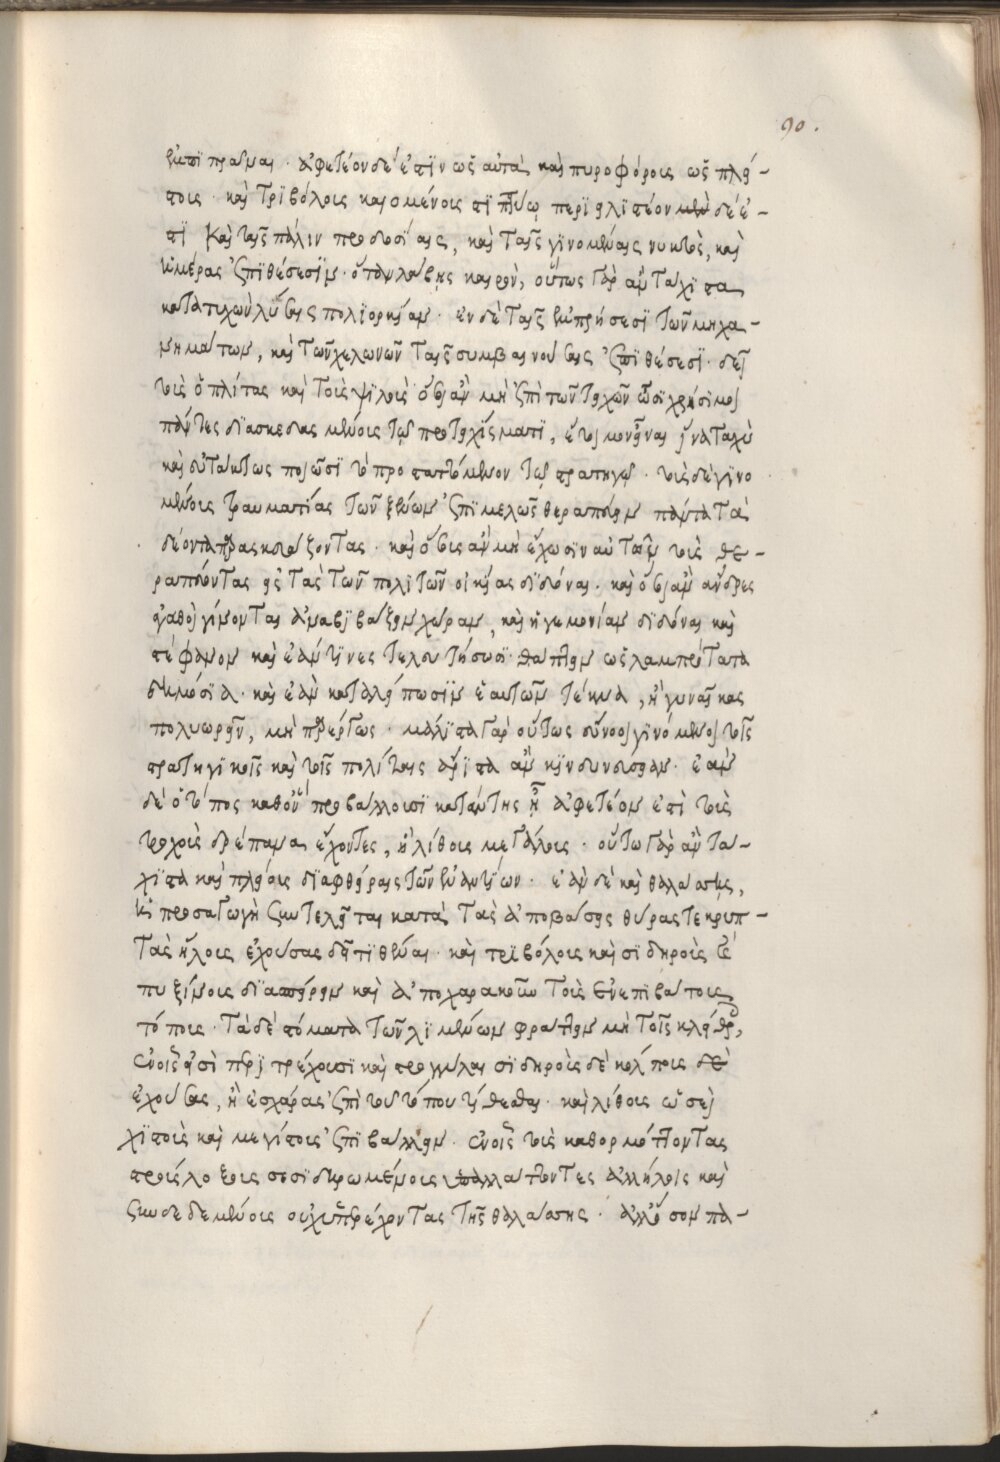 90.
ἐμπιπρᾶναι. ἀφετέον δέ ἐστιν ὡς αὐτὰ καὶ πυροφόροις ὡς πλεί-
στοις. καὶ τριβόλοις καιομένοις στιππύω περιειλιστέον μὲν δέ ἐ-
στι καὶ ταῖς πάλιν προδοσίαις, καὶ ταῖς γινομέναις νυκτὸς, καὶ
ἡμέρας ἐπιθέσεσιν. ὅταν λάβῃς καιρὸν, οὕτως γὰρ ἂν τάχιστα
κατατυχὼν λύσαις πολιορκίαν. ἐν δὲ ταῖς ἐμπρήσεσι τῶν μηχα-
νημάτων, καὶ τῶν χελωνῶν ταῖς συμβαινούσαις ἐπιθέσεσι. δεῖ
τοὺς ὁπλίτας καὶ τοὺς ψιλοὺς ὅσοι ἂν μὴ ἐπὶ τῶν τειχῶν ὦσι χρήσιμοι
πάντες διασκεδασμένοις τῷ προτειχίσματι, ἑτοίμους εἶναι ἵνα ταχὺ
καὶ εὐτάκτως ποιῶσι τὸ προσταττόμενον τῷ στρατηγῷ. τοὺς δὲ γινο
μένους τραυματίας τῶν ξένων ἐπιμελῶς θεραπεύειν πάντα τὰ
δέοντα παρασκευάζοντας. καὶ ὅσοις ἂν μὴ ἔχωσιν αὐτῶν τοὺς θε-
ραπεύοντας εἰς τὰς τῶν πολιτῶν οἰκίας διδόναι. καὶ ὅσοι ἂν ἄνδρες
ἀγαθοὶ γίνονται ἀναβιβάζειν χώραν, καὶ ἡγεμονίαν διδόναι καὶ
στέφανον καὶ ἐάν τινες τελευτήσωσι. θάπτειν ὡς λαμπρότατα
δημοσίᾳ. καὶ ἐὰν καταλείπωσιν ἑαυτῶν τέκνα, ἢ γυναῖκας
πολυωρεῖν, μὴ παρέργως. μάλιστα γὰρ οὕτως εὖνοοι γινόμενοι τοῖς
στρατηγικοῖς καὶ τοῖς πολίταις ἄριστα ἂν κινδυνεύσειαν. ἐὰν
δὲ ὁ τόπος καθ' ὃν προσβάλλουσι κατάντης ᾖ ἀφετέον ἐστὶ τοὺς
τροχοὺς δρέπανα ἔχοντες, ἢ λίθους μεγάλους. οὕτω γὰρ ἂν τα-
χιστα καὶ πλείους διαφθείραις τῶν ἐναντίων. ἐὰν δὲ καὶ θαλάσσης,
ἡ προσαγωγὴ συντελῆται κατὰ τὰς ἀποβάσεις θύρας τε κρυπ-
τὰς ἥλους ἐχούσας δεῖ τιθέναι. καὶ τριβόλους καὶ σιδηροὺς καὶ
πυξίνους διασπείρειν καὶ ἀποχαρακοῦν τοὺς εὐεπιβάτους
τόπους. τὰ δὲ στόματα τῶν λιμένων φράττειν μὴ τοῖς κλείθροις,
ἐν οἷς εἰσὶ περιτρέχουσι καὶ στρογγύλαι σιδηροῖς δὲ κόλποις δὲ
ἐχούσας, ἢ ἐσχάρας ἐπὶ τοῦ τόπου τίθεσθαι. καὶ λίθοις ὡσεὶ
χίστοις καὶ μεγίστοις ἐπιβάλλειν. ἐν οἷς τοὺς καθορμόττοντας
προσηλο ξύλοις σεσιδηρωμένοις ἐπαλλάττοντες ἀλλήλοις καὶ
συνδεδεμένοις οὐχ ὑπερέχοντας τῆς θαλάσσης. ἀλλ' ὅσον πα-